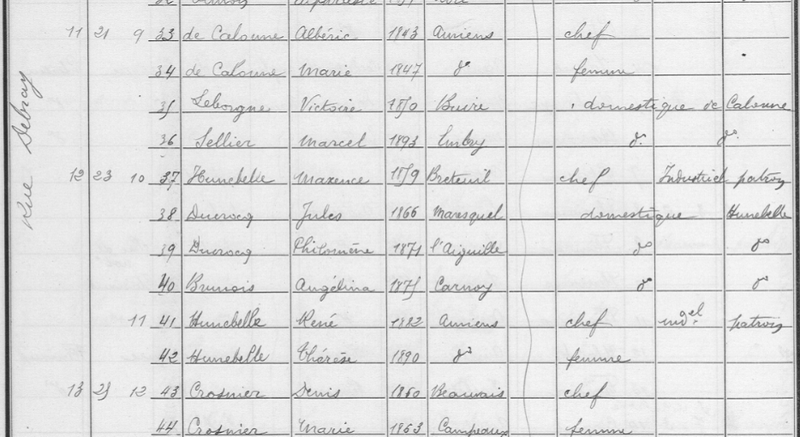 Rue Debray
11 21 9 33 de Calonne Albéric 1843 Amiens chef
34 de Calonne Marie 1847 do femme
35 Leborgne Victoire 1870 Buire domestique de Calonne
36 Sellier Marcel 1893 do do
12 23 10 37 Hunebelle Maxence 1859 Breteuil chef Industriel patron
38 Ducrocq Jules 1866 Maresquel domestique Hunebelle
39 Ducrocq Philomène 1871 l'Aiguille do do
40 Brunois Angélina 1875 Carnoy do do
11 41 Hunebelle René 1882 Amiens chef indel patron
42 Hunebelle Thérèse 1890 do femme
13 25 12 43 Crosnier Denis 1860 Beauvais chef
44 Crosnier Marie 1863 Campeaux femme